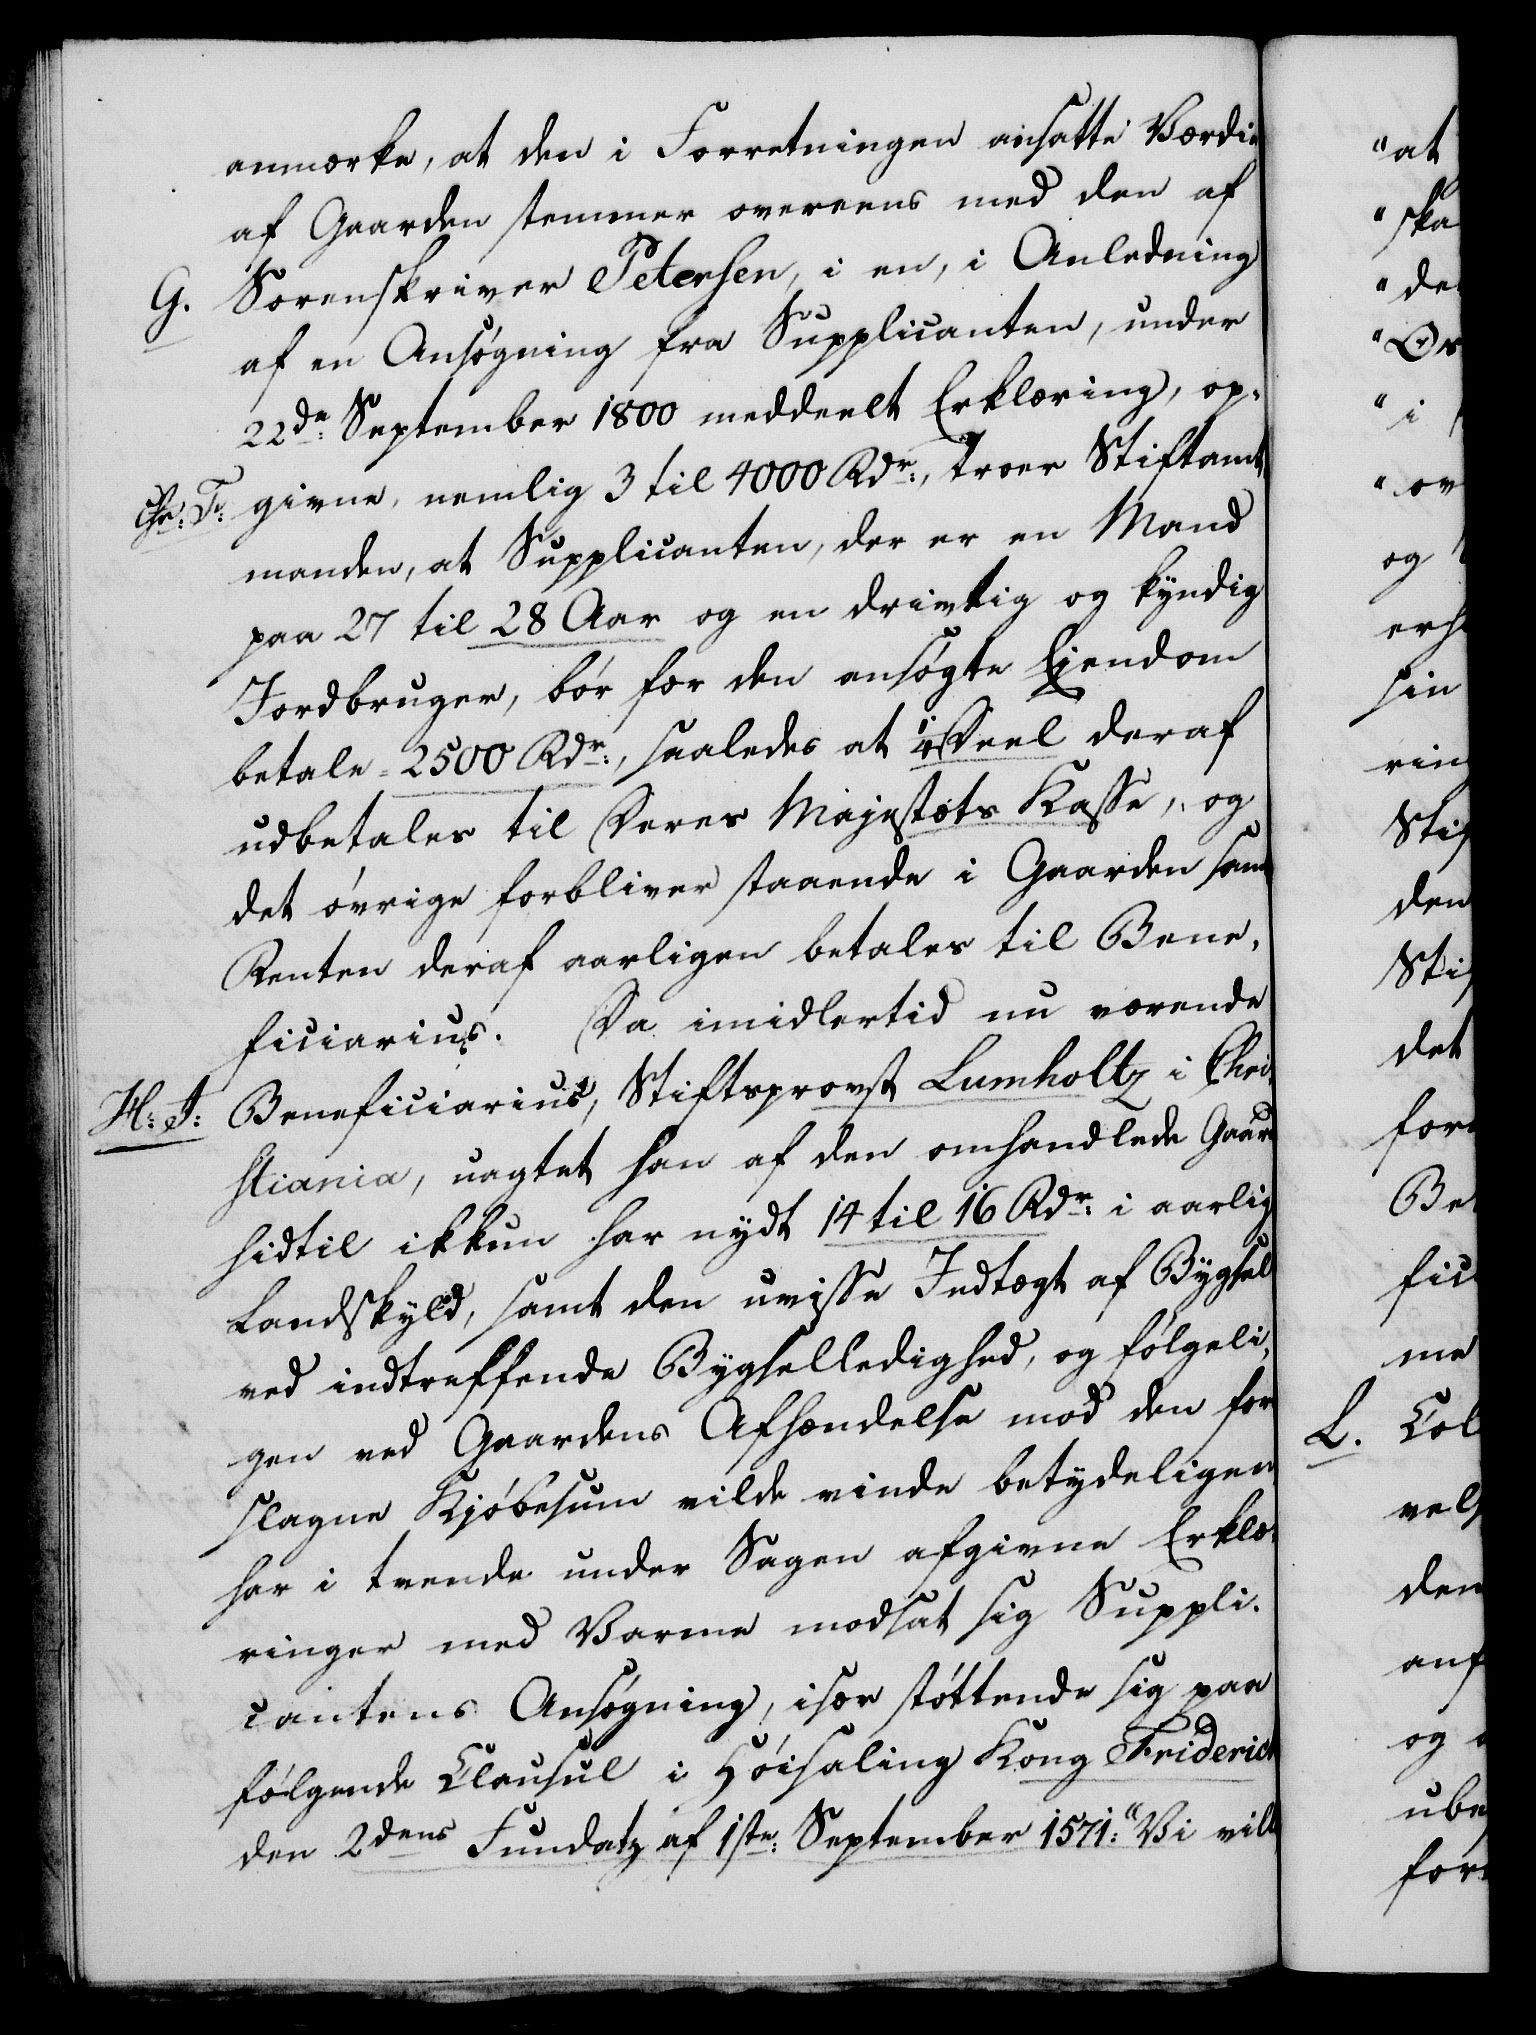 anmærke, at den i Forretningen ansatte Værdie
af Gaarden stemmer overeens med den af
G. Sorenskriver Petersen, i en, i Anledning
af en Ansøgning fra Supplicanten, under
22de: September 1800 meddeelt Erklæring, op-
Chr: F: givne, nemlig 3 til 4000 Rdr:, troer Stiftamt
manden, at Supplicanten, der er en Mand
paa 27 til 28 Aar og en drivtig og kyndig
Jordbruger, bør for den ansøgte Eiendom
betale 2500 Rdr:, saaledes at ¼ Deel deraf
udbetales til Deres Majestæts Kasse, og
det øvrige forbliver staaende i Gaarden samt
Renten deraf aarligen betales til Bene-
ficiarius. Da imidlertid nu værende
H: I: Beneficiarius, Stiftsprovst Lumholtz i Chri-
stiania, uagtet han af den omhandlede Gaard
hidtil ikkun har nydt 14 til 16 Rdr: i aarlig
Landskyld, samt den uvisse Indtægt af Bygsel
ved indtreffende Bygselledighed, og følgeli-
gen ved Gaardens Afhændelse mod den for
slagne Kjøbesum vilde vinde betydeligen
har i tvende under Sagen afgivne Erklæ-
ringer med Varme modsat sig Suppli-
cantens Ansøgning, især støttende sig paa
følgende Clausul i Høisalig Kong Friderich
den 2dens Fundatz af 1ste: September 1571: "Vi vill
"at
"ska
"de
"i
"ov
og
sin
ring
Stif
den
Stif
det
for
Be
fic
me
L. Col
vel
den
anf
og
ube
for